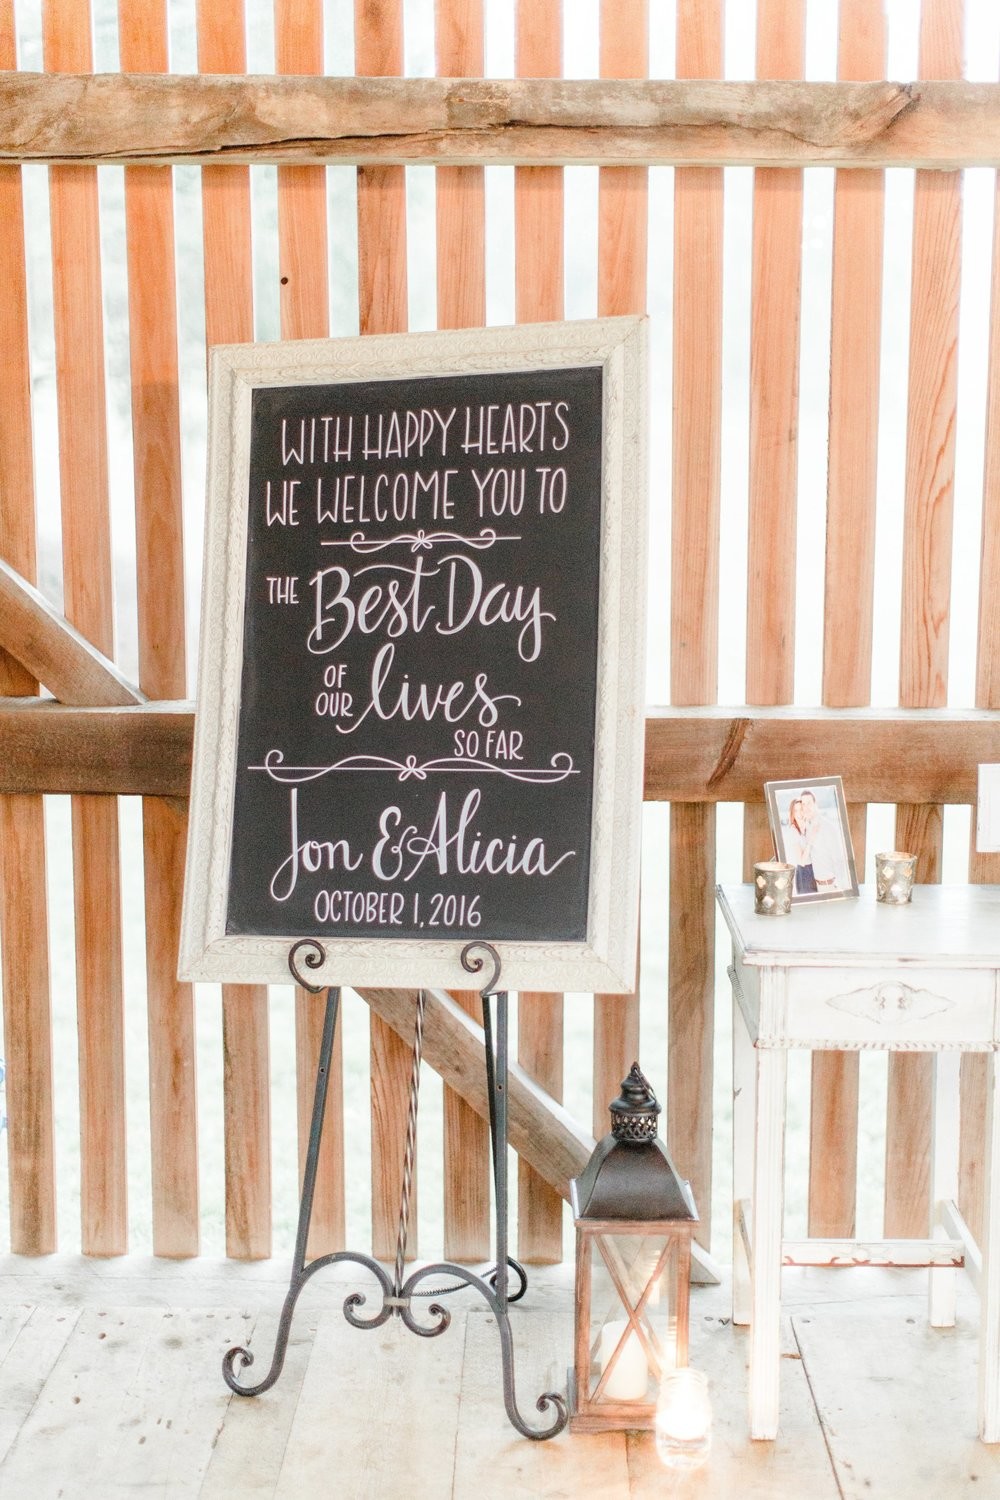 WITH HAPPY HEARTS
WE WELCOME YOU TO
THE Best Day
OF
OUR lives
SO FAR
Jon & Alicia
OCTOBER 1, 2016